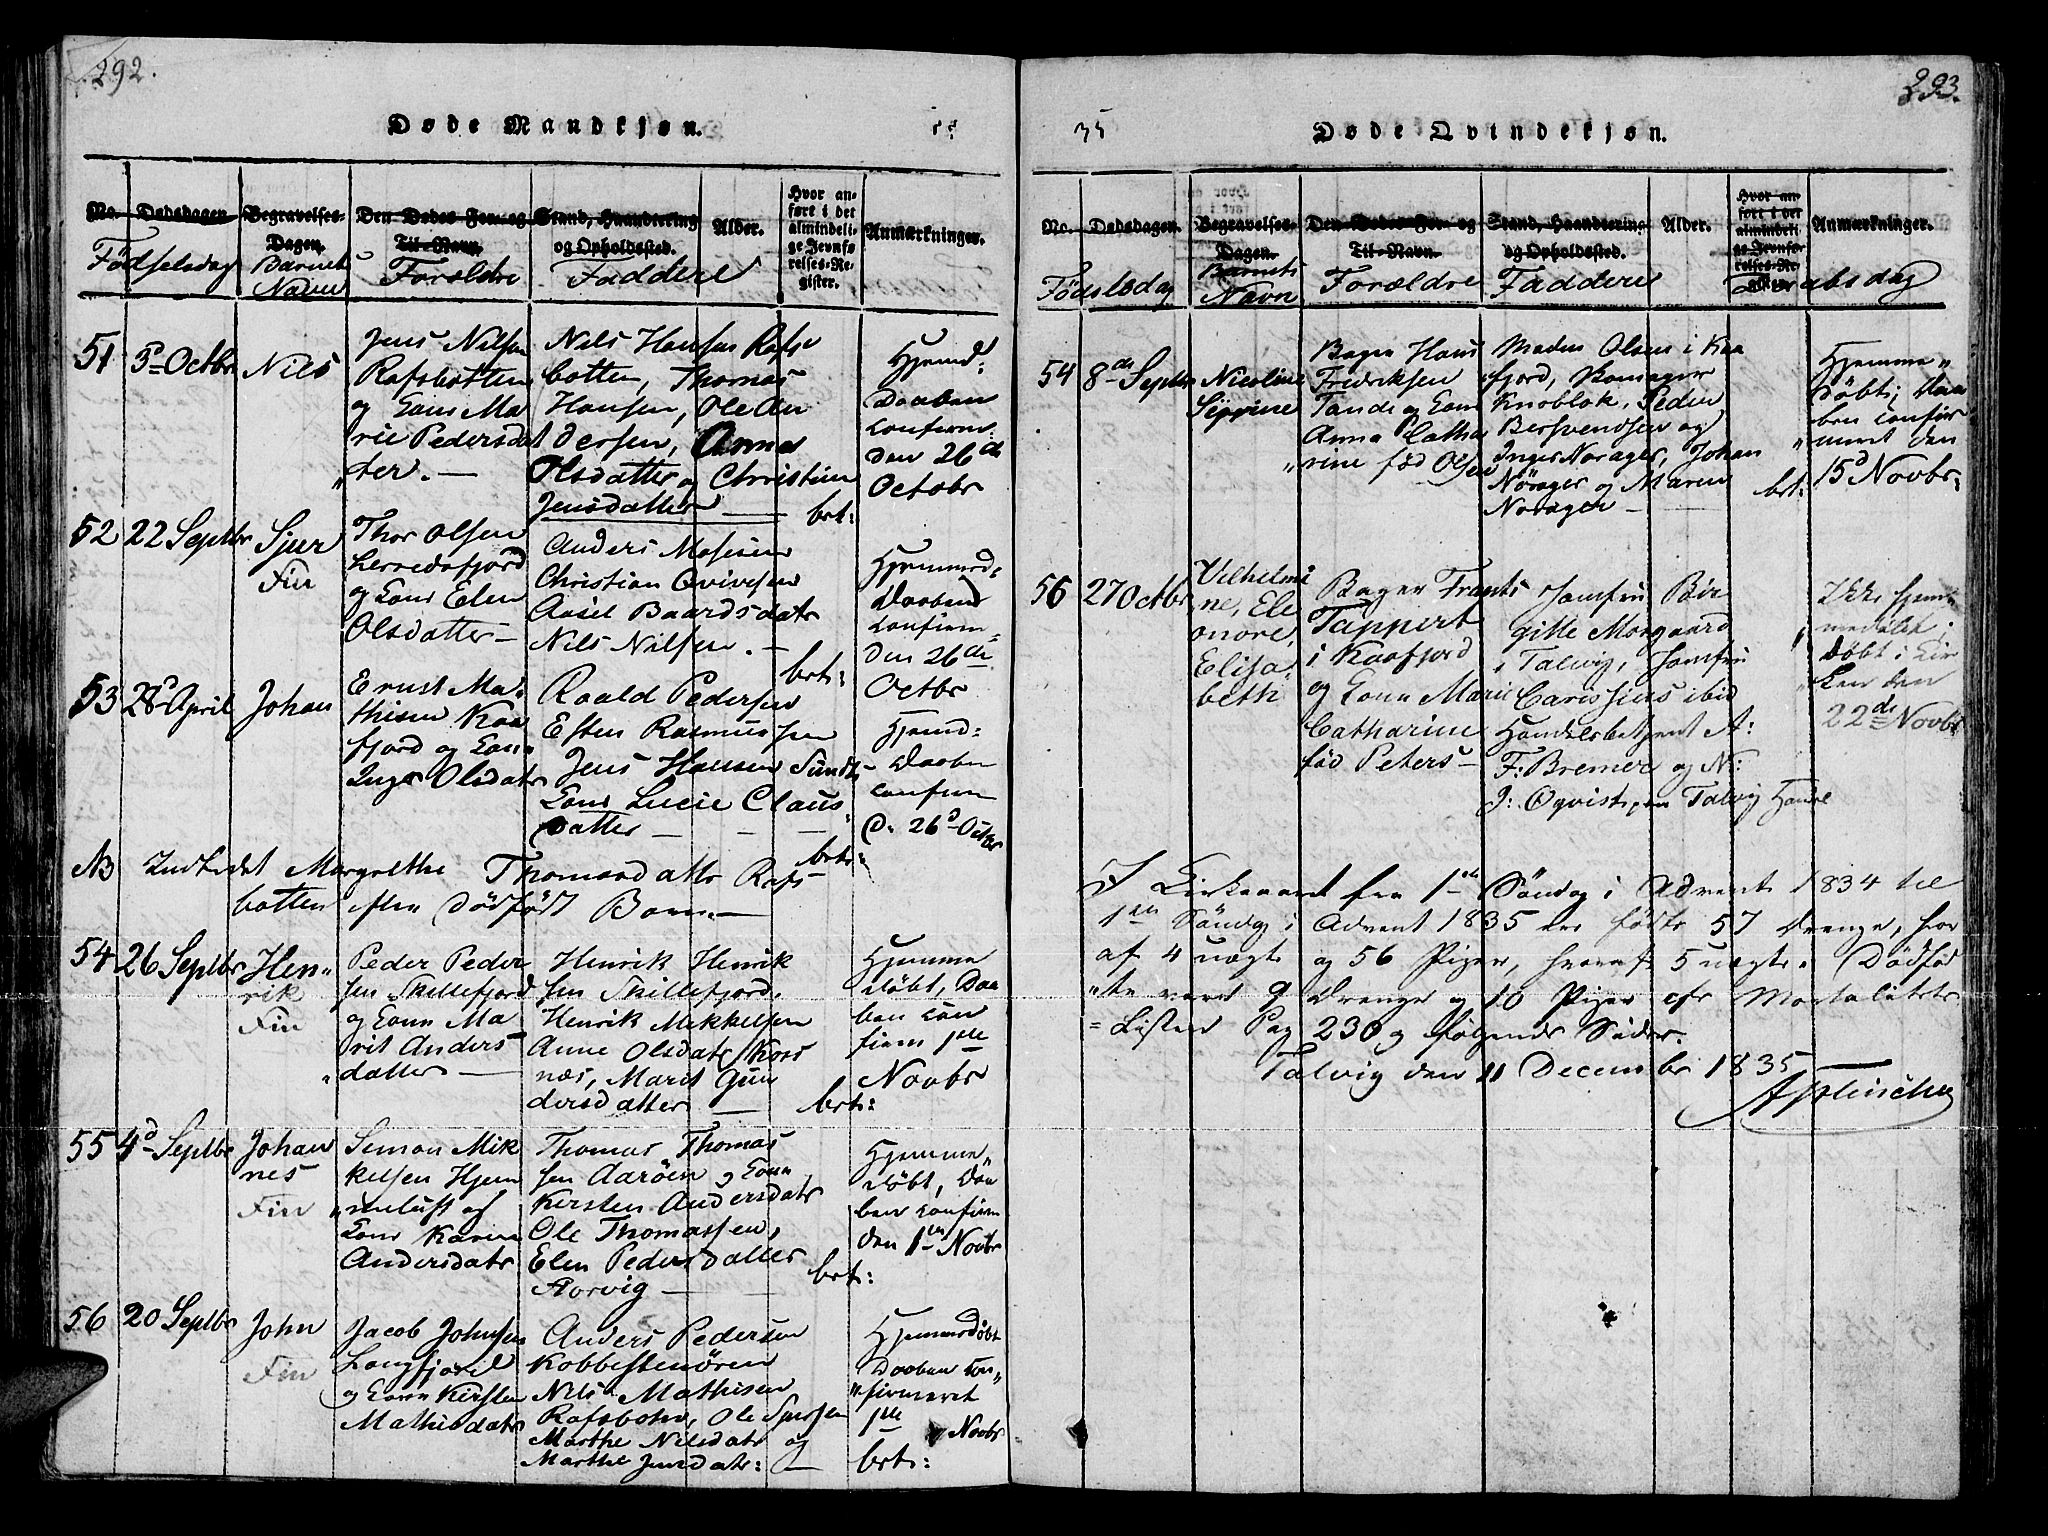 292.
Døde Mandkjøn.
35
No.
Dødsdagen
Fødselsdag
Begravelses-
Dagen.
Barnets
Navn
Den Dødes For- og
Til-Navn.
Forældre
Stand, Haandtering
og Opholdssted.
Faddere
Alder.
Hvor an-
ført i det
almindeli-
ge Jevnfø-
relses-Re-
gister.
Anmærkninger.
51
3d Octbr
Nils
Jens Nilsen
Rafsbotten
og Kone Ma
rie Pedersdat
"ter. —
Nils Hansen Rafs-
botten, Thomas
Hansen, Ole An
dersen, Anna
Olsdatter og Christine
Jensdatter —
Hjemd:
Daaben
confirm:
den 26de
Octobr
brt:
52
22 Septbr
Sjur
Fin
Thor Olsen
Lerredsfjord
og Kone Elen
Olsdatter —
Anders Mosesen
Christian Qvivesen
Aasel Baardsdatr
Nils Nilsen. —
Hjemmed=
Daaben
confirm=
den 26de
Octbr
brt:
53
28d April
Johan
Ernst Ma-
thisen Kaa
fjord og Kone
Inger Olsdatr
Roald Pedersen
Esten Rasmussen
Jens Hansen Sundt
Kone Lucie Claus-
datter — — —
Hjemd=
Daaben
confirm
d. 26d Octbr
brt:
NB Indledet Margrethe Thomasdattr Rafs-
botten efter dødfødt Barn. —
54
26 Septbr
Hen-
rik
Fin
Peder Peder
sen Skillefjord
og Kone Ma
rit Anders
"datter —
Henrik Henrik
sen Skillefjord,
Henrik Mikkelsen
Anne Olsdatr Kors
næs, Marit Gun
dersdatter —
Hjemme
døbt, Daa
ben con
firm 1ste
Novbr
brt:
55
4d Septbr
Johan
nes
Fin
Simon Mik
kelsen Hjem
"meluft og
Kone Karen
Andersdatr
Thomas Thomas
sen Aarøen og Kone
Kirsten Andersdatr
Ole Thomassen,
Elen Pedersdatter
Storvig —
Hjemme"
døbt, Daa
ben confirm
den 1ste Novbr
brt:
56
20 Septbr
John
Fin
Jacob Johnsen
Langfjord
og Kone Kirsten
Mathisdatr
Anders Pedersen
Kobbestenören
Nils Mathisen
Rafsbotn, Ole Sjursen
Marthe Nilsdatr og
Marthe Jensdatr: —
Hjemmedøbt
Daaben con"
"firmeret
1ste Novbr
brt:
35
Døde Qvindekjøn.
293.
No.
Dødsdagen.
Fødselsdag
Begravelses-
Dagen.
Barnets
Navn
Den Dødes For- og
Til-Navn.
Forældre
Stand, Haandtering
og Opholdssted.
Faddere
Alder.
Hvor an-
ført i det
almindeli-
ge Jevnfør-
relses-Re-
gister.
Anmærkninger.
Daabsdag
54
8de Septbr
Nicoline
Sippine
Bager Hans
Fredriksen
Tande og Kone
Anna Catha
"rine fød Olsen
Mads Olsen i Kaa
fjord,
Knoblok, Peder
Bersvendsen og
Inger Norager, Johan
Nörager og Maren
Norager —
Hjemme"
døbt; Daa
ben confir
"meret den
15d Novbr:
brt:
56
27 Octbr
Vilhelmi
ne, Ele
onore,
Elisa,
beth
Bager Frants
Tappert
i Kaafjord
og Kone Marie
Catharine
fød Peters —
Jomfru Bir
gitte Morgaard
i Talvig, Jomfru
Carissius ibid
Handelsbetjent A:
F: Bremer og N:
J: Oqvist paa Talvig Handel
Ikke hjem
medøbt;
Døbt i Kir
"ken den
22de Novbr
I Kirkeaaret fra 1ste Söndag i Advent 1834 til
1ste Söndag i Advent 1835 ere fødte 57 Drenge, hvor
af 4 uægte og 56 Piger, hvoraf 5 uægte. Dødfød
"te vare 9 Drenge og 10 Piger cfr Mortalitets
= Listen Pag 230 og følgende Sider.
Talvig den 11 December 1835